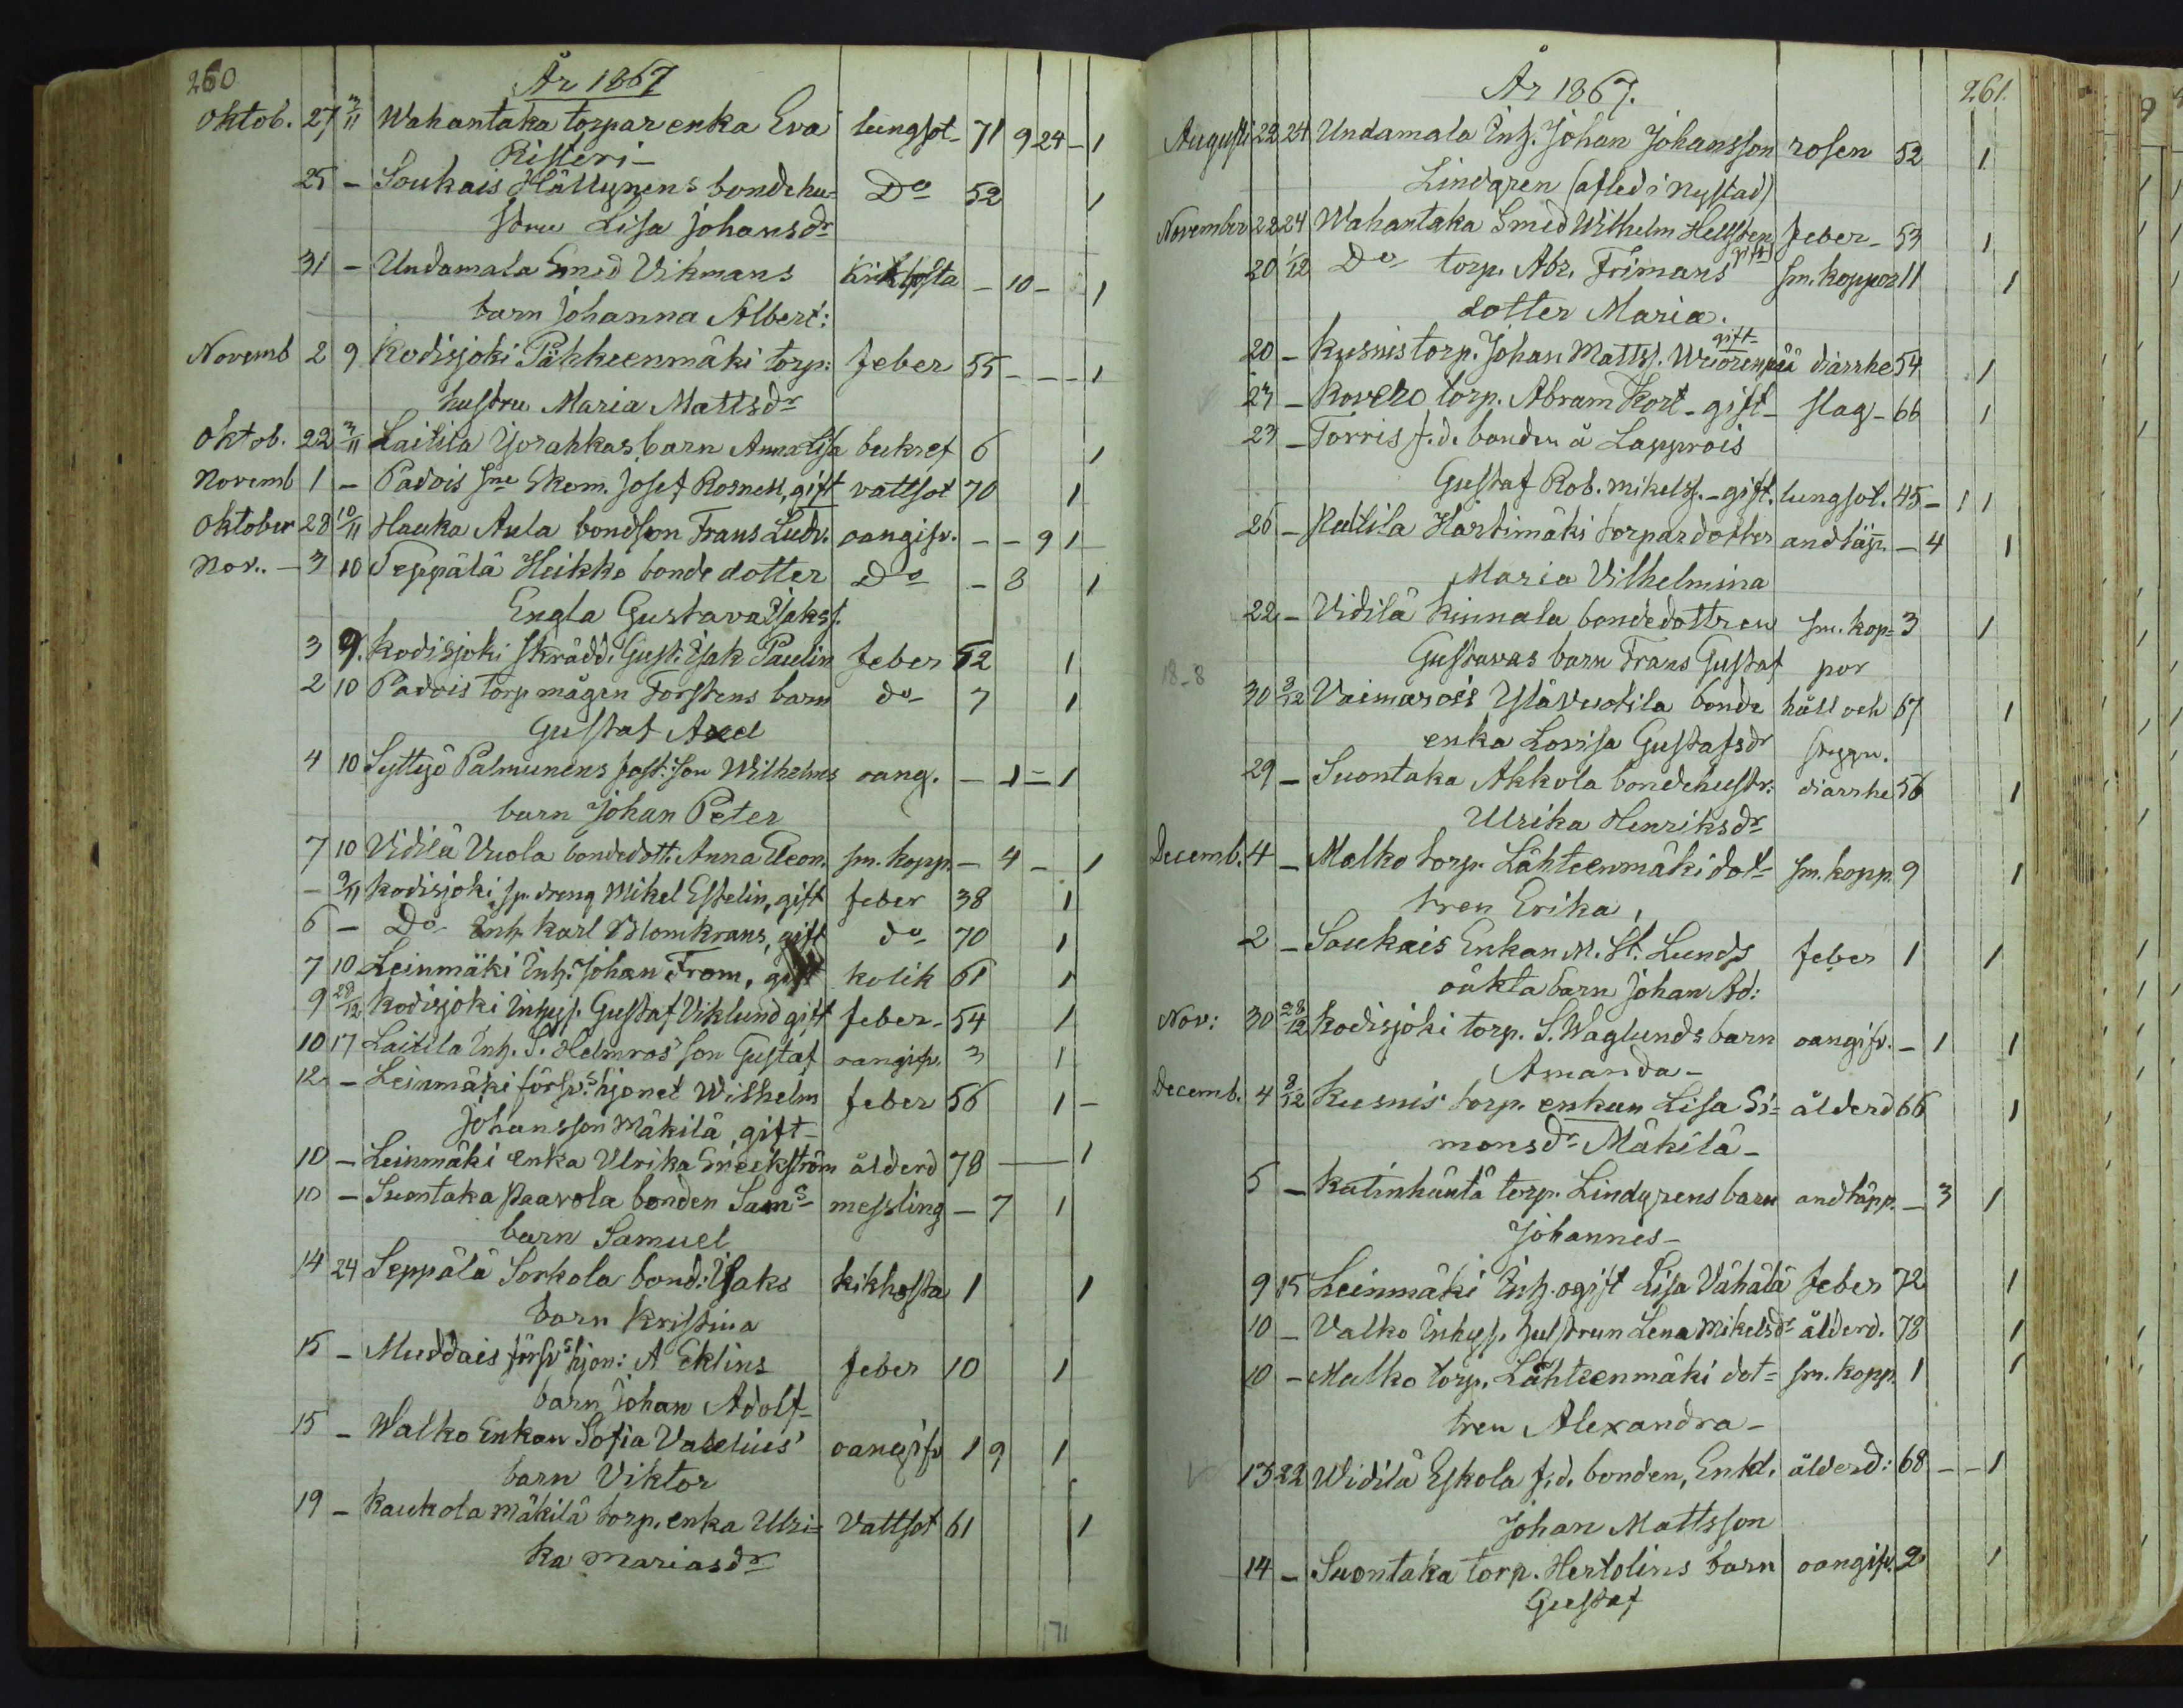 260
År 1867
Oktob. 27 3/11 Wahantaka torpar enka Eva lungsot 71 9 24 - 1
Risteri -
25 - Soukais Hällynens bondehu= Do 52 1
stru Lisa Johansdr
31 - Undamala Smed Vikmans Kikhosta - 10 - 1
barn Johanna Albert:
Novemb 2 9 Kodisjoki Pökkeenmäki torp: feber 55 - - - 1
hustru Maria Mattsdr
Oktob. 22 3/11 Laitila Yorahkas barn Anna Lisa bukref 6 1
Novemb 1 - Padois Skom. Josef Rosnell, gift vattsot 70 1
Oktober 28 10/11 Hauka Aula bondson Frans Ludv. oangifv. - - 9 1
Nov. - 3 10 Seppälä Heikko bonde dotter Do - 8 1
Engla Gustava Isaks.
3 9. Kodisjoki Skrädd. Gust. Isak Paulin feber 52 1
2 10 Padois torp mågen Forstens barn do 7 1
Gustaf Axel
4 10 Syttyö Palmunens fost: son Wilhelms oang. - 1 - 1
barn Johan Peter
7 10 Vidilä Vuola bondedott. Anna Eleon. sm. kopp. - 4 - 1
- 9/11 Kodisjoki, sp. dreng Mikel Estelin, gift feber 38 1
6 - Do Inh. Karl Blomkrans, gift do 70 1
7 10 Leinmäki Inh. Johan From, gift kolik 61 1
9 28/12 Kodisjoki Inhys. Gustaf Viklund gift feber - 54 1
10 17 Laitila Inh. S. Helmros' son Gustaf oangifv. 3 1
12 - Leinmäki försvs hjonet Wilhelm feber 56 1 -
Johansson Mäkilä, gift -
10 - Leinmäki enka Ulrika Sneckström ålderd 78 - 1
10 - Suontaka Paavola bonden Sams messling - 7 1
barn Samuel
14 24 Seppälä Sorkola bond: Isaks kikhosta 1 1
barn Kristina
15 - Muddais försvs hjon: A Eklins feber 10 1
barn Johan Adolf -
15 - Walko Enkan Sofia Valelius' oangifv 1 9 1
barn Viktor
19 - Kaukola Mäkilä torp. enka Ulri= Vattsot 61 1
ka Mariasdr
171
261.
År 1867.
Augusti 22 24 Undamala Inh. Johan Johansson rosen 52 1
Lindgren (afled i Nystad)
November 22 24 Wahantaka Smed Wilhelm Hellsten feber - 53 1
gift
20 1/12 Do torp. Abr. Frimans sm. koppor 11 1
dotter Maria.
gift -
20 - Kusnis torp. Johan Matts. Wuorenpää diarrhe 54 1
27 - Kovero torp. Abram Kort - gift - slag - 66 1
23 - Torris f.d. bonden å Lapprois
Gustaf Rob. Mikelss. - gift. lungsot. 45 - 1 1
26 - Puttila Härtimäki torpardotter andtäp. - 4 1
Maria Vilhelmina
22 - Vidilä Kinnala bondedottren sm. kop= 3 1
Gustavas barn Frans Gustaf por
18-8
30 2/12 Vaimarois Ylävuotila bonde håll och 67 1
enka Lovisa Gustafsdr styng.
29 - Suontaka Akkola bondehustr: diarrhe 56 1
Ulrika Henriksdr
Decemb. 4 - Malko torp. Lähteenmäki dot= sm. kopp. 9 1
tren Erika,
2 - Soukais Enkan M. St. Lunds feber 1 1
oäkta barn Johan Ad:
Nov: 30 28/12 Kodisjoki torp. S. Waglunds barn oangifv. - 1 1
Amanda -
Decemb. 4 8/12 Kusnis torp. enkan Lisa Si= ålderd 66 1
monsdr Mäkilä -
5 - Katinhäntä torp. Lindgrens barn andtäpp. - 3 1
Johannes -
9 15 Leinmäki Inh. ogift Lisa Vähälä feber 72 1
10 - Valko Inhys. hustrun Lena Mikelsdr ålderd. 78 1
10 - Malko torp. Lähteenmäki dot= sm. kopp. 1 1
tren Alexandra -
13 22 Widilä Eskola f.d. bonden, Enkl. ålderd: 68 - - 1
Johan Mattsson
14 - Suontaka torp. Hertolins barn oangifv. 2 1
Gustaf